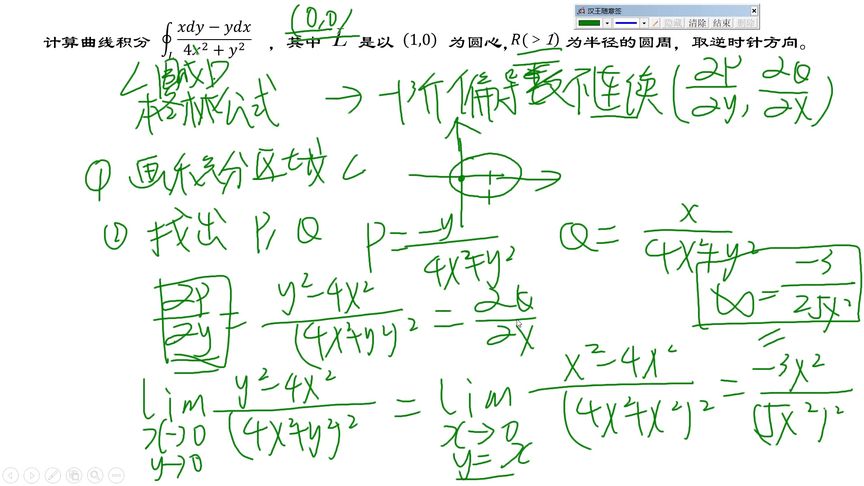 (0,0)
计算曲线积分 ∮_L (xdy − ydx)/(4x² + y²) ，其中 L 是以 (1,0) 为圆心, R(> 1) 为半径的圆周，取逆时针方向。
汉王随意签
隐藏 清除 结束 删除
L围成D
格林公式 → 一阶偏导数不连续 (∂P/∂y, ∂Q/∂x)
① 画积分区域 L
② 找出 P, Q P = −y/(4x²+y²) Q = x/(4x²+y²)
∂P/∂y = (y²−4x²)/(4x²+y²)² = ∂Q/∂x
∞ = −3/25x²
lim x→0 y→0 (y²−4x²)/(4x²+y²)² = lim x→0 y=x (x²−4x²)/(4x²+x²)² = −3x²/(5x²)²